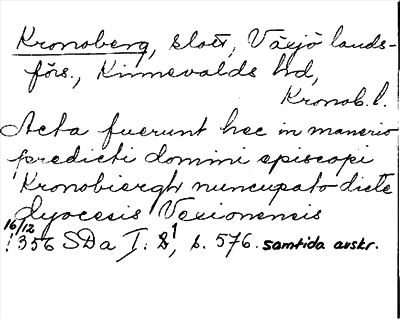 Kronoberg, slott, Växjö lands-
förs., Kinnevalds hd,
Kronob. l.
Acta fuerunt hec in manerio
predicti domini episcopi
Kronobiergh nuncupato dicte
dyocesis Vexionensis
16/12
1356 SDa I: 1, s. 576. samtida avskr.